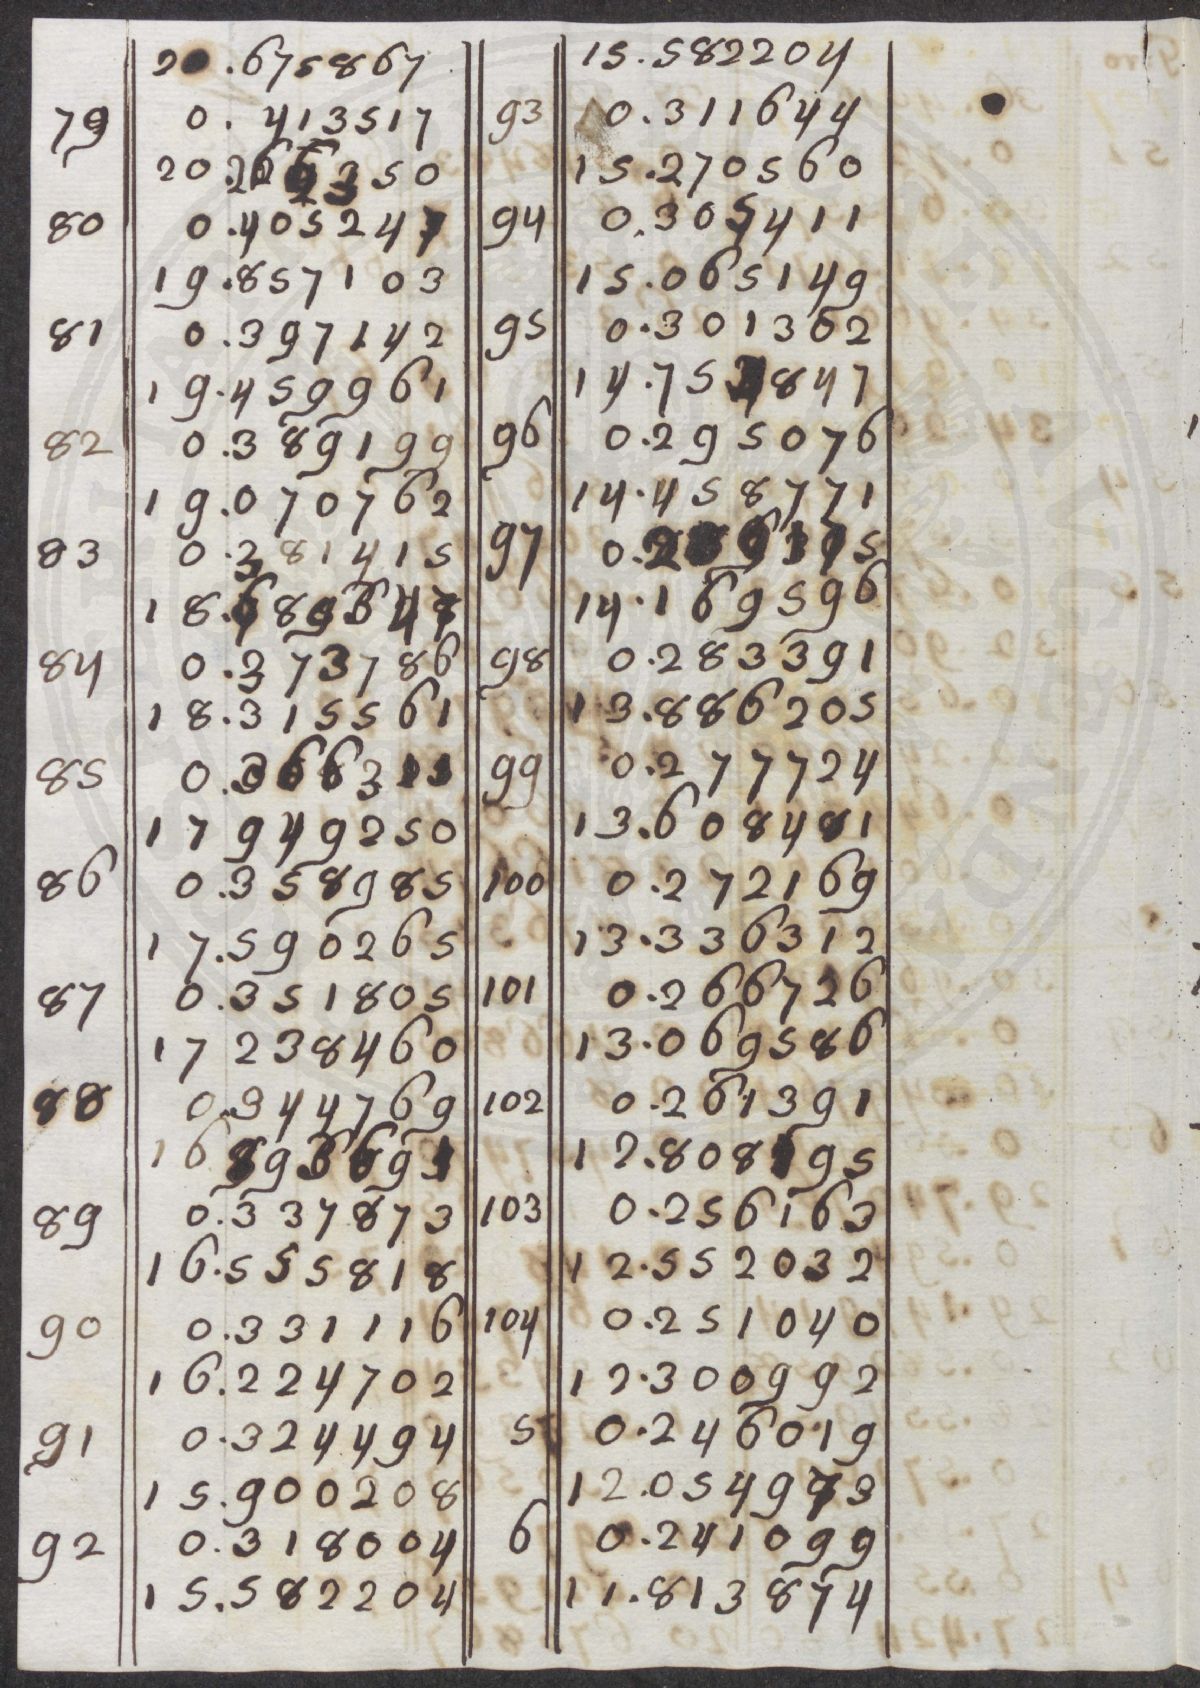 20.675867
79 0.413517
20.262350
80 0.405247
19.857103
81 0.397142
19.459961
82 0.389199
19.070762
83 0.381415
18.689347
84 0.373786
18.315561
85 0.366311
17 949250
86 0.358985
17.590265
87 0.351805
17 238460
88 0.344769
16 893691
89 0.337873
16.555818
90 0.331116
16.224702
91 0.324494
15.900208
92 0.318004
15.582204
15.582204
93 0.311644
15.270560
94 0.305411
15.065149
95 0.301302
14.753847
96 0.295076
14.458771
97 0.289175
14.169596
98 0.283391
13.886205
99 0.277724
13.608481
100 0.272169
13.336312
101 0.266726
13.069586
102 0.261391
12.808195
103 0.256163
12.552032
104 0.251040
12.300992
5 0.246019
12.054973
6 0.241099
11.813874